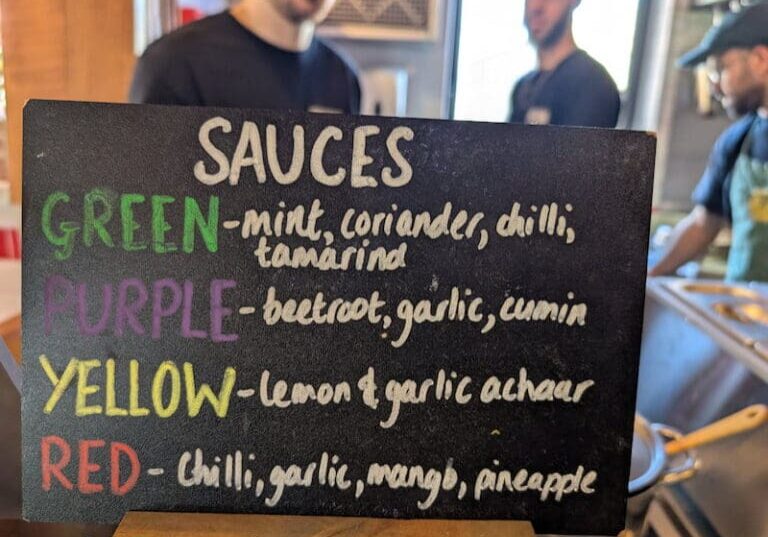 SAUCES
GREEN - mint, coriander, chilli,
tamarind
PURPLE - beetroot, garlic, cumin
YELLOW - lemon & garlic achaar
RED - Chilli, garlic, mango, pineapple